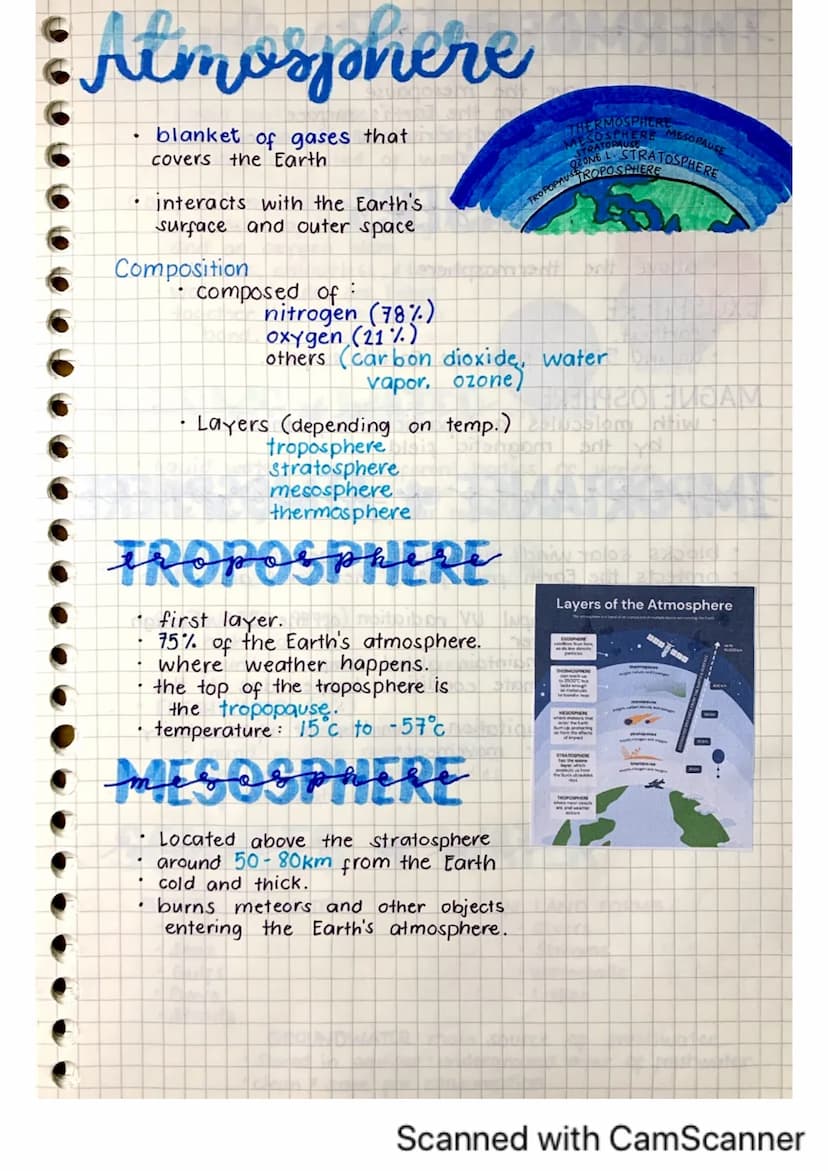 Atmosphere
• blanket of gases that
covers the Earth
• interacts with the Earth's
surface and outer space
THERMOSPHERE
MESOSPHERE MESOPAUSE
STRATOPAUSE
OZONE L. STRATOSPHERE
TROPOPAUSE TROPOSPHERE
Composition
• composed of :
nitrogen (78%)
oxygen (21%)
others (carbon dioxide, water
vapor, ozone)
• Layers (depending on temp.)
troposphere
stratosphere
mesosphere
thermosphere
TROPOSPHERE
troposphere
• first layer.
• 75% of the Earth's atmosphere.
• where weather happens.
• the top of the troposphere is
the tropopause.
• temperature : 15°c to -57°c
Layers of the Atmosphere
EXOSPHERE
THERMOSPHERE
MESOSPHERE
STRATOSPHERE
TROPOSPHERE
MESOSPHERE
mesosphere
• Located above the stratosphere
• around 50-80km from the Earth
• cold and thick.
• burns meteors and other objects
entering the Earth's atmosphere.
Scanned with CamScanner